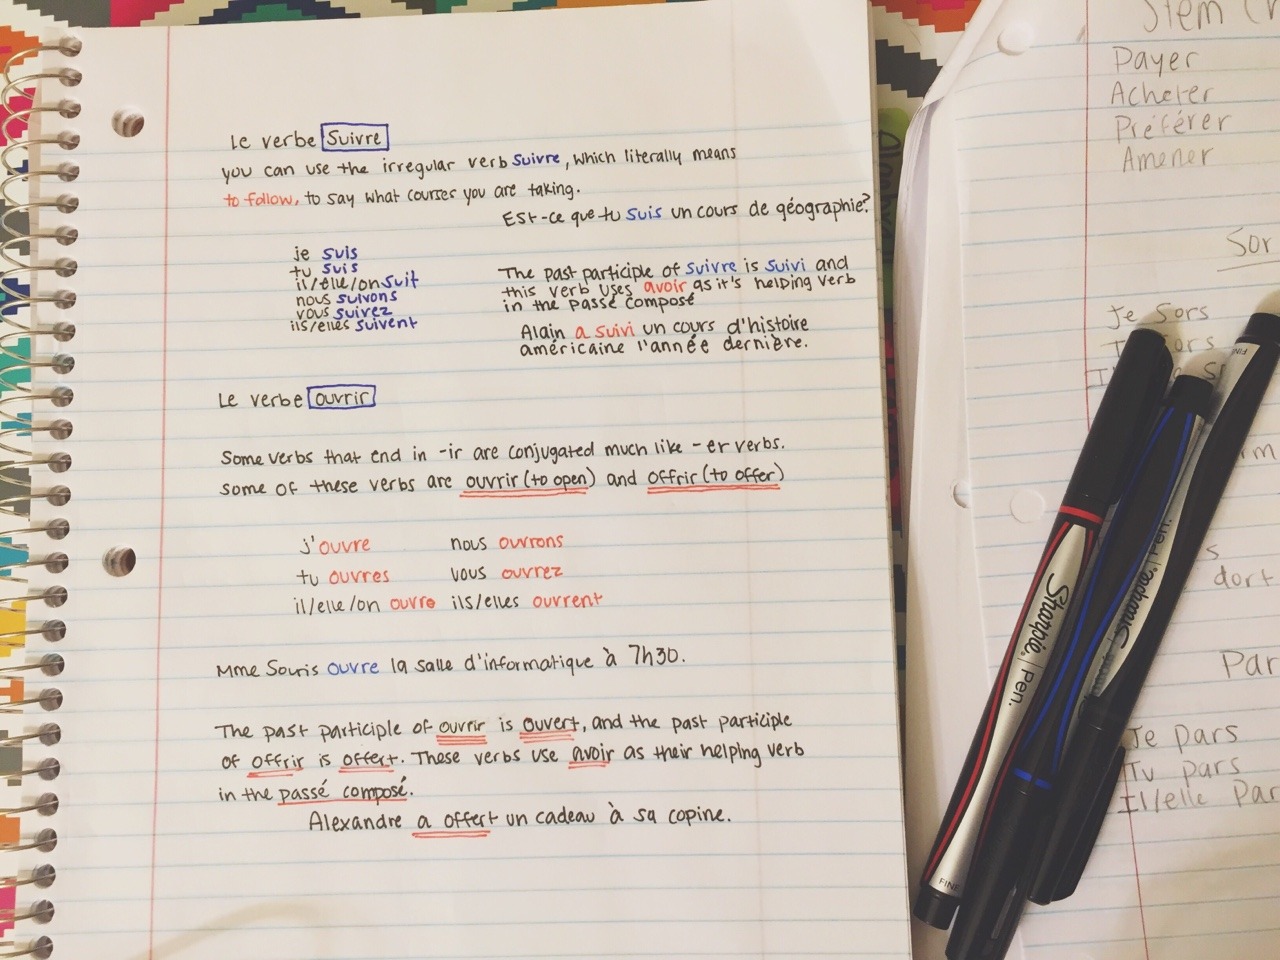 Le verbe Suivre
you can use the irregular verb suivre, which literally means
to follow, to say what courses you are taking.
Est-ce que tu suis un cours de géographie?
je suis
tu suis
il/elle/on suit
nous suivons
vous suivez
ils/elles suivent
The past participle of suivre is suivi and
this verb uses avoir as it's helping verb
in the passé composé
Alain a suivi un cours d'histoire
américaine l'année dernière.
Le verbe ouvrir
Some verbs that end in -ir are conjugated much like -er verbs.
Some of these verbs are ouvrir (to open) and offrir (to offer)
j'ouvre nous ouvrons
tu ouvres vous ouvrez
il/elle/on ouvre ils/elles ouvrent
Mme Souris ouvre la salle d'informatique à 7h30.
The past participle of ouvrir is ouvert, and the past participle
of offrir is offert. These verbs use avoir as their helping verb
in the passé composé.
Alexandre a offert un cadeau à sa copine.
Stem
Payer
Acheter
Préférer
Amener
Sor
Je sors
sors
s
dort
Par
Je pars
Tu pars
Il/elle Par
Sharpie. Pen.
FINE
Sharpie. Pen.
FINE